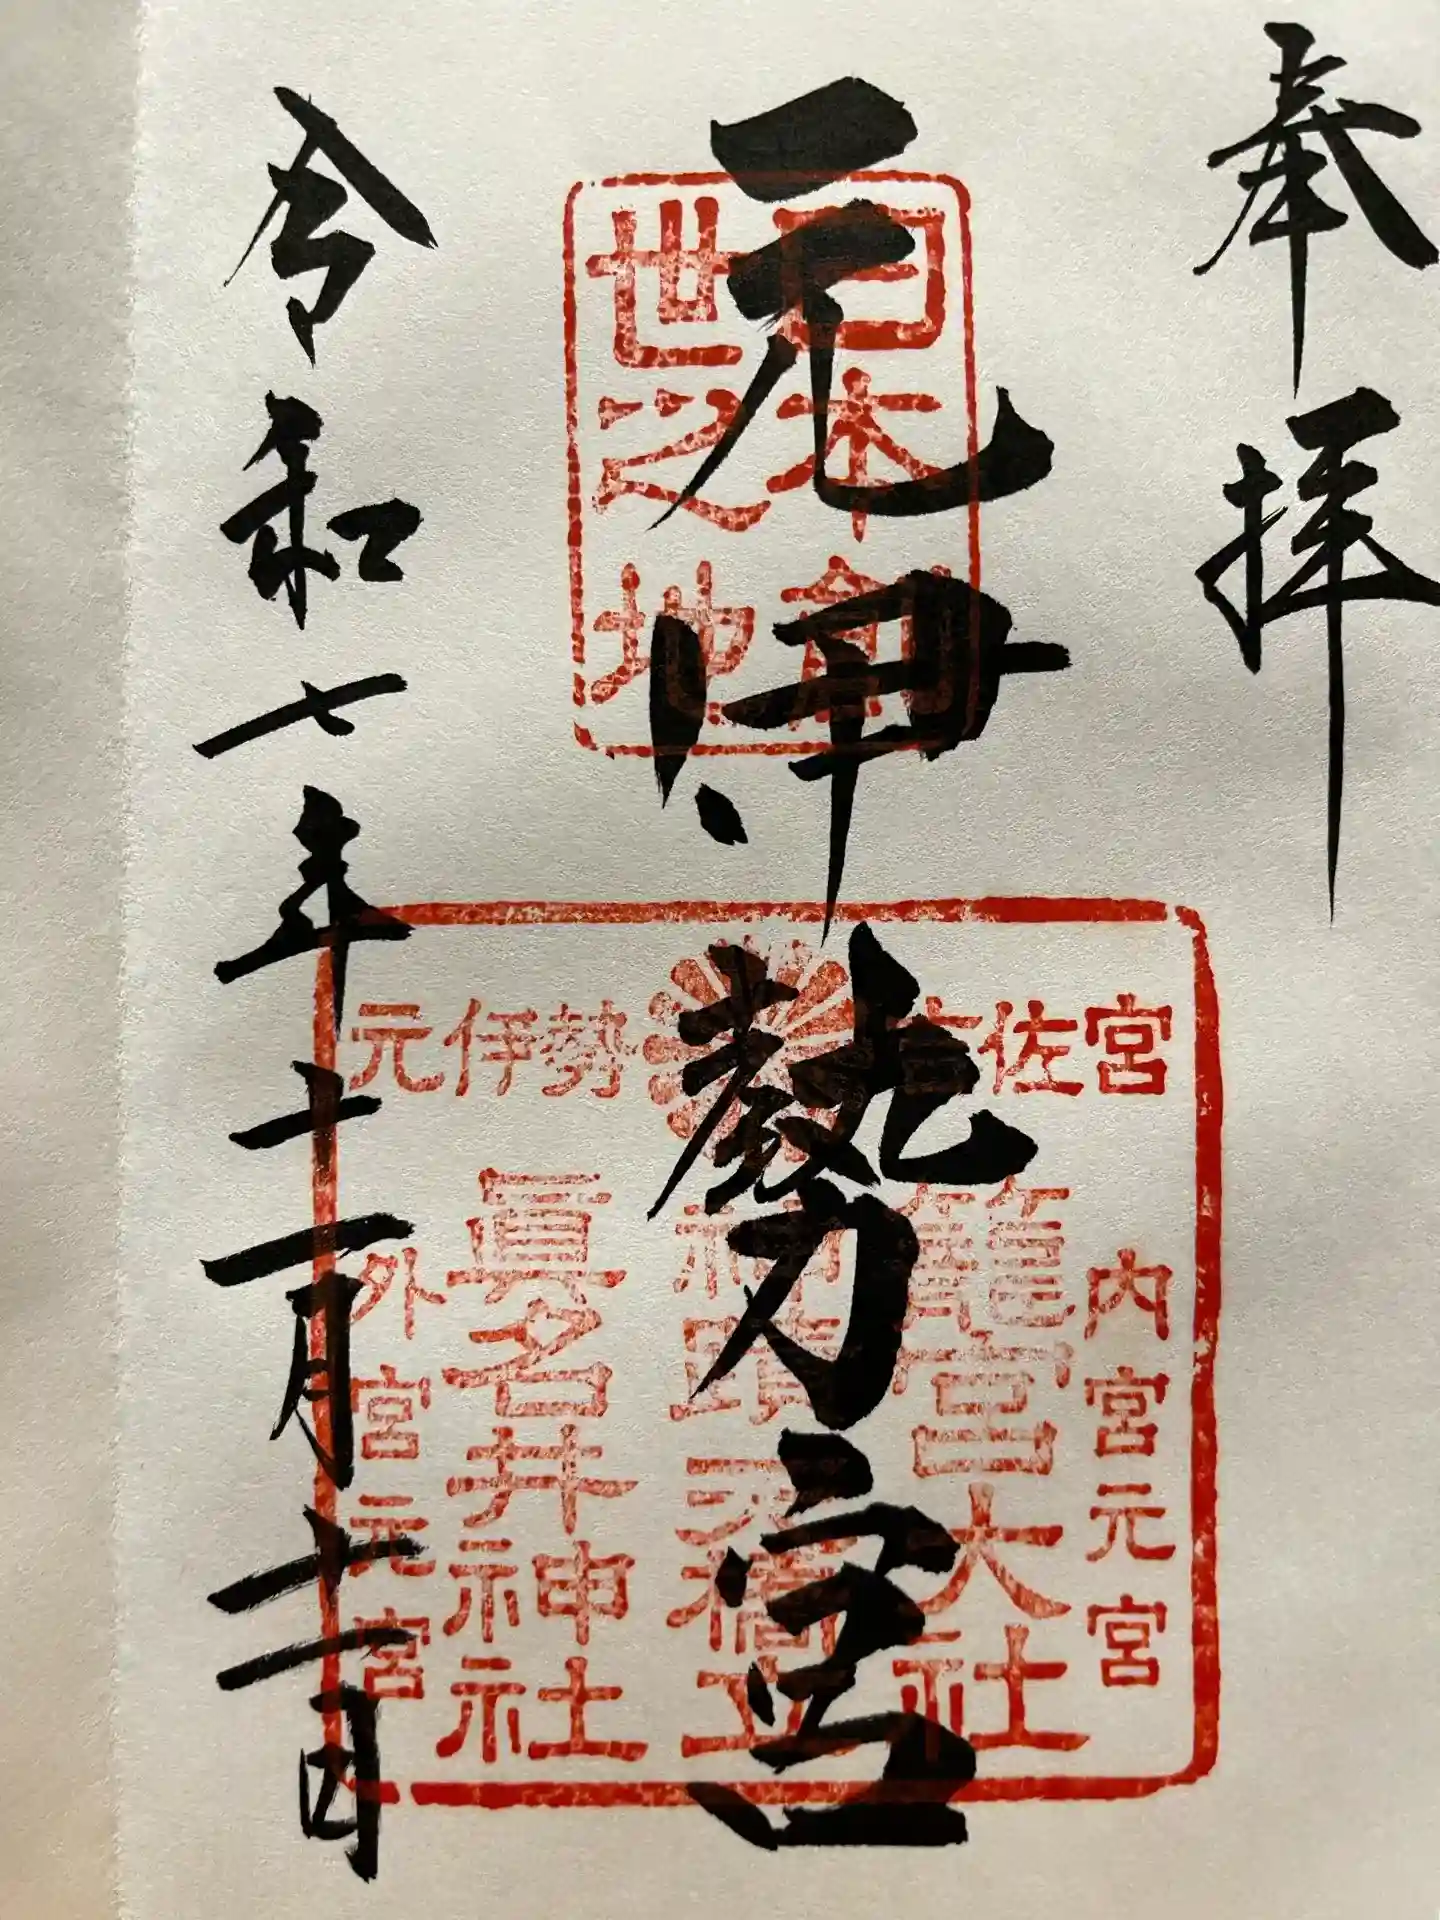 奉拝
元伊勢宮
令和七年十一月十一日
日本創
世之地
元伊勢 吉佐宮
内宮元宮
籠宮大社
神蹟天橋立
眞名井神社
外宮元宮